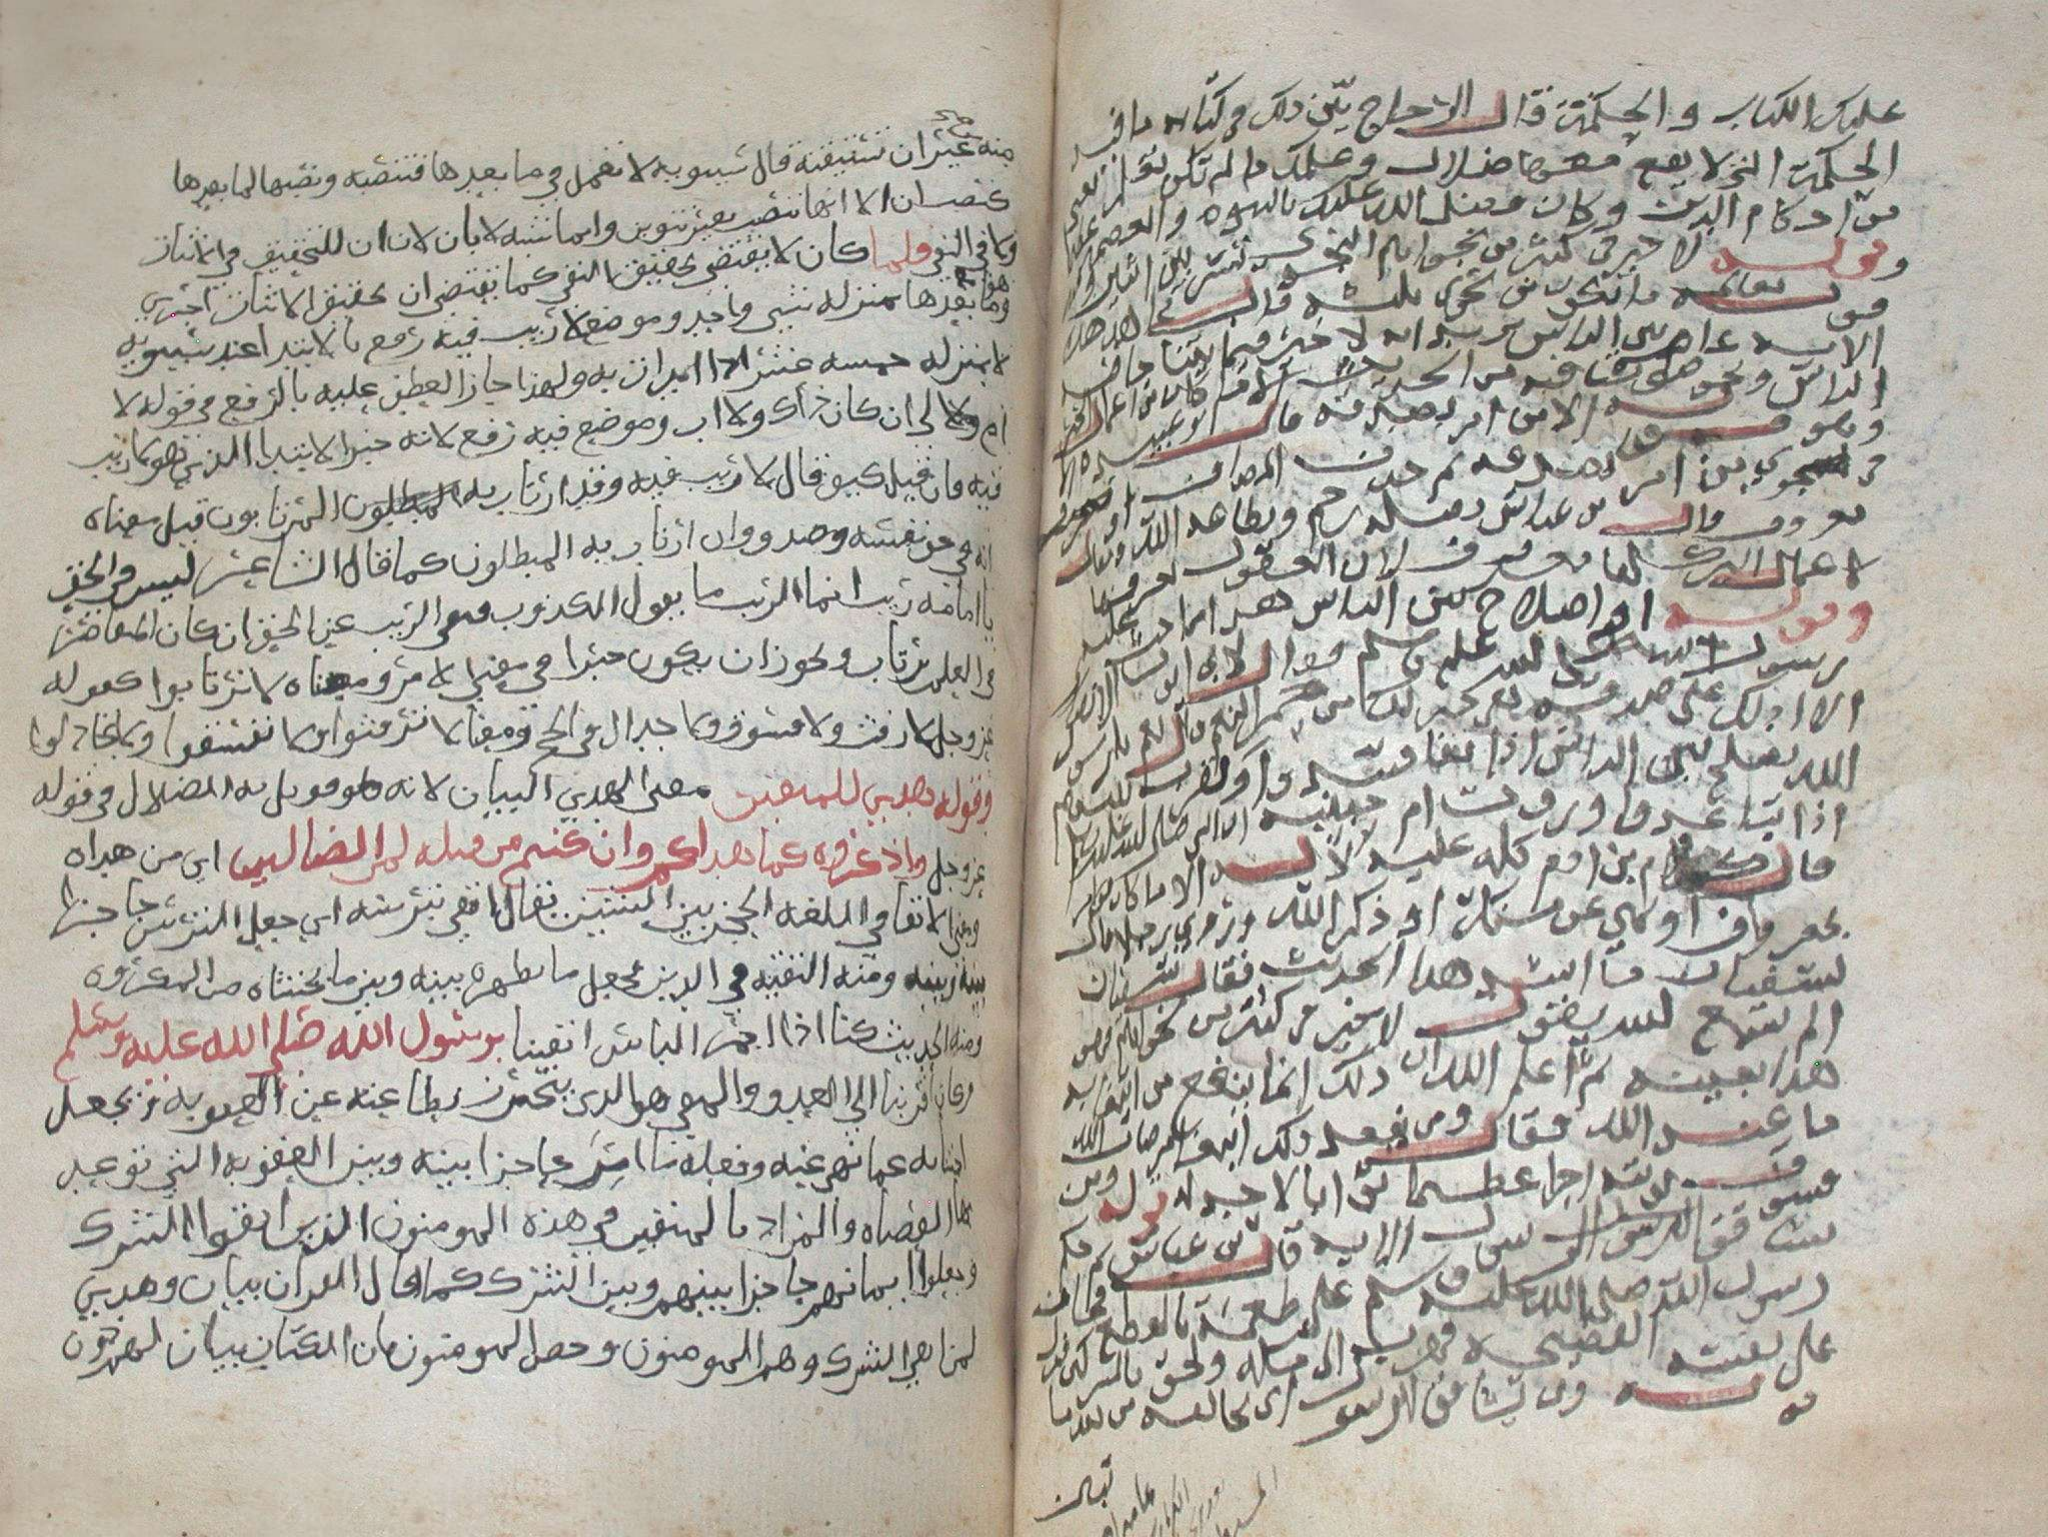 عليك الكتاب والحكمة قال الزجاج بين ذلك في كتابه ما فيه
الحكمة التي لا يقع معها ضلال وعلمك ما لم تكن تعلم
من احكام الدين وكان فضل الله عليك بالنبوة والعصمة
وقوله لا خير في كثير من نجواهم النجوى
قوله تعالى ما يكون من نجوى ثلثة قال مجاهد هذه
الاية عامة في الناس يريد انه لا خير فيما يتناجى فيه
الناس ويخوضون فيه من الحديث الا ما كان من اعمال الخير
وهو قوله الا من امر بصدقة قال ابو عبيدة
في نجوى من امر بصدقة ثم حذف المضاف او معروف
قال بن عباس بصلة رحم وبطاعة الله ويقال
لاعمال البر كلها معروف لان العقول تعرفها
وقوله او اصلاح بين الناس هذا مما حث عليه
رسول الله صلى الله عليه وسلم فقال لابي ايوب الانصاري
الا ادلك على صدقة هي خير لك من حمر النعم قال نعم يا رسول
الله تصلح بين الناس اذا تفاسدوا وتقرب بينهم
اذا تباعدوا وروت ام حبيبة ان النبي صلى الله عليه وسلم
قال كلام بن ادم كله عليه لا له الا ما كان من امر
بمعروف او نهي عن منكر او ذكر الله وروي ان رجلا قال
لسفيان ما اشد هذا الحديث فقال سفيان
الم تسمع الله يقول لا خير في كثير من نجواهم فهو
هذا بعينه ثم اعلم الله ان ذلك انما ينفع من ابتغى به
ما عند الله فقال ومن يفعل ذلك ابتغاء مرضات الله
فسوف نوتيه اجرا عظيما ثوابا لا حد له قوله ومن
يشاقق الرسول الاية قال بن عباس حكم
رسول الله صلى الله عليه وسلم على طعمة بالقطع فخاف
على نفسه الفضيحة فهرب الى مكة ولحق بالمشركين فنزل
قوله ومن يشاقق الرسول اي يخالفه من بعد ما
تبين
منه غير ان تثنيته قال سيبويه لا تعمل في ما بعدها فتنصبه ونصبها لما بعدها
كنصب ان الا انها تنصب بغير تنوين وانما شبه لا بان لان ان للتحقيق في الاثبات
ولا في النفي فلما كان لا يقتضي تحقيق النفي كما يقتضي ان تحقيق الاثبات اجري
هو وما بعدها بمنزلة شي واحد وموضع لا ريب فيه رفع بالابتدا عند سيبويه
لا بمنزلة خمسة عشر اذا ابتدات به ولهذا جاز العطف عليه بالرفع في قوله لا
ام لي ان كان ذاك ولا اب وموضع فيه رفع لانه خبر الابتدا الذي هو لا ريب
فيه فان قيل كيف قال لا ريب فيه وقد ارتاب به المبطلون المرتابون قيل معناه
انه في نفسه حق وصدق وان ارتاب به المبطلون كما قال الشاعر ليس في الحق
يا امامة ريب انما الريب ما يقول الكذوب فنفى الريب عن الحق وان كان المقاصر
في العلم يرتاب ويجوز ان يكون خبرا في معنى الامر ومعناه لا ترتابوا كقوله
عز وجل لا رفث ولا فسوق ولا جدال في الحج ومعناه لا ترفثوا ولا تفسقوا ولا تجادلوا
وقوله هدى للمتقين معنى الهدى البيان لانه قوبل به الضلال في قوله
عز وجل واذكروه كما هداكم وان كنتم من قبله لمن الضالين اي من هداه
ومعنى الاتقا في اللغة الحجز بين الشيئين يقال اتقى بترسه اي جعل الترس حاجزا
بينه وبينه ومنه التقية في الدين يجعل ما يظهره بينه وبين ما يخشاه من المكروه
ومنه الحديث كنا اذا احمر الباس اتقينا برسول الله صلى الله عليه وسلم
وكان اقربنا الى العدو والمتقي هو الذي يتحرز بطاعته عن العقوبة ويجعل
اجتنابه عما نهي عنه وفعله ما امر حاجزا بينه وبين العقوبة التي توعد
بها العصاة والمراد بالمتقين في هذه المومنون الذين اتقوا الشرك
وجعلوا ايمانهم حاجزا بينهم وبين الشرك كما قال القران بيان وهدى
لمن اتقى الشرك وهم المومنون وخص المومنون بان الكتاب بيان لهم دون